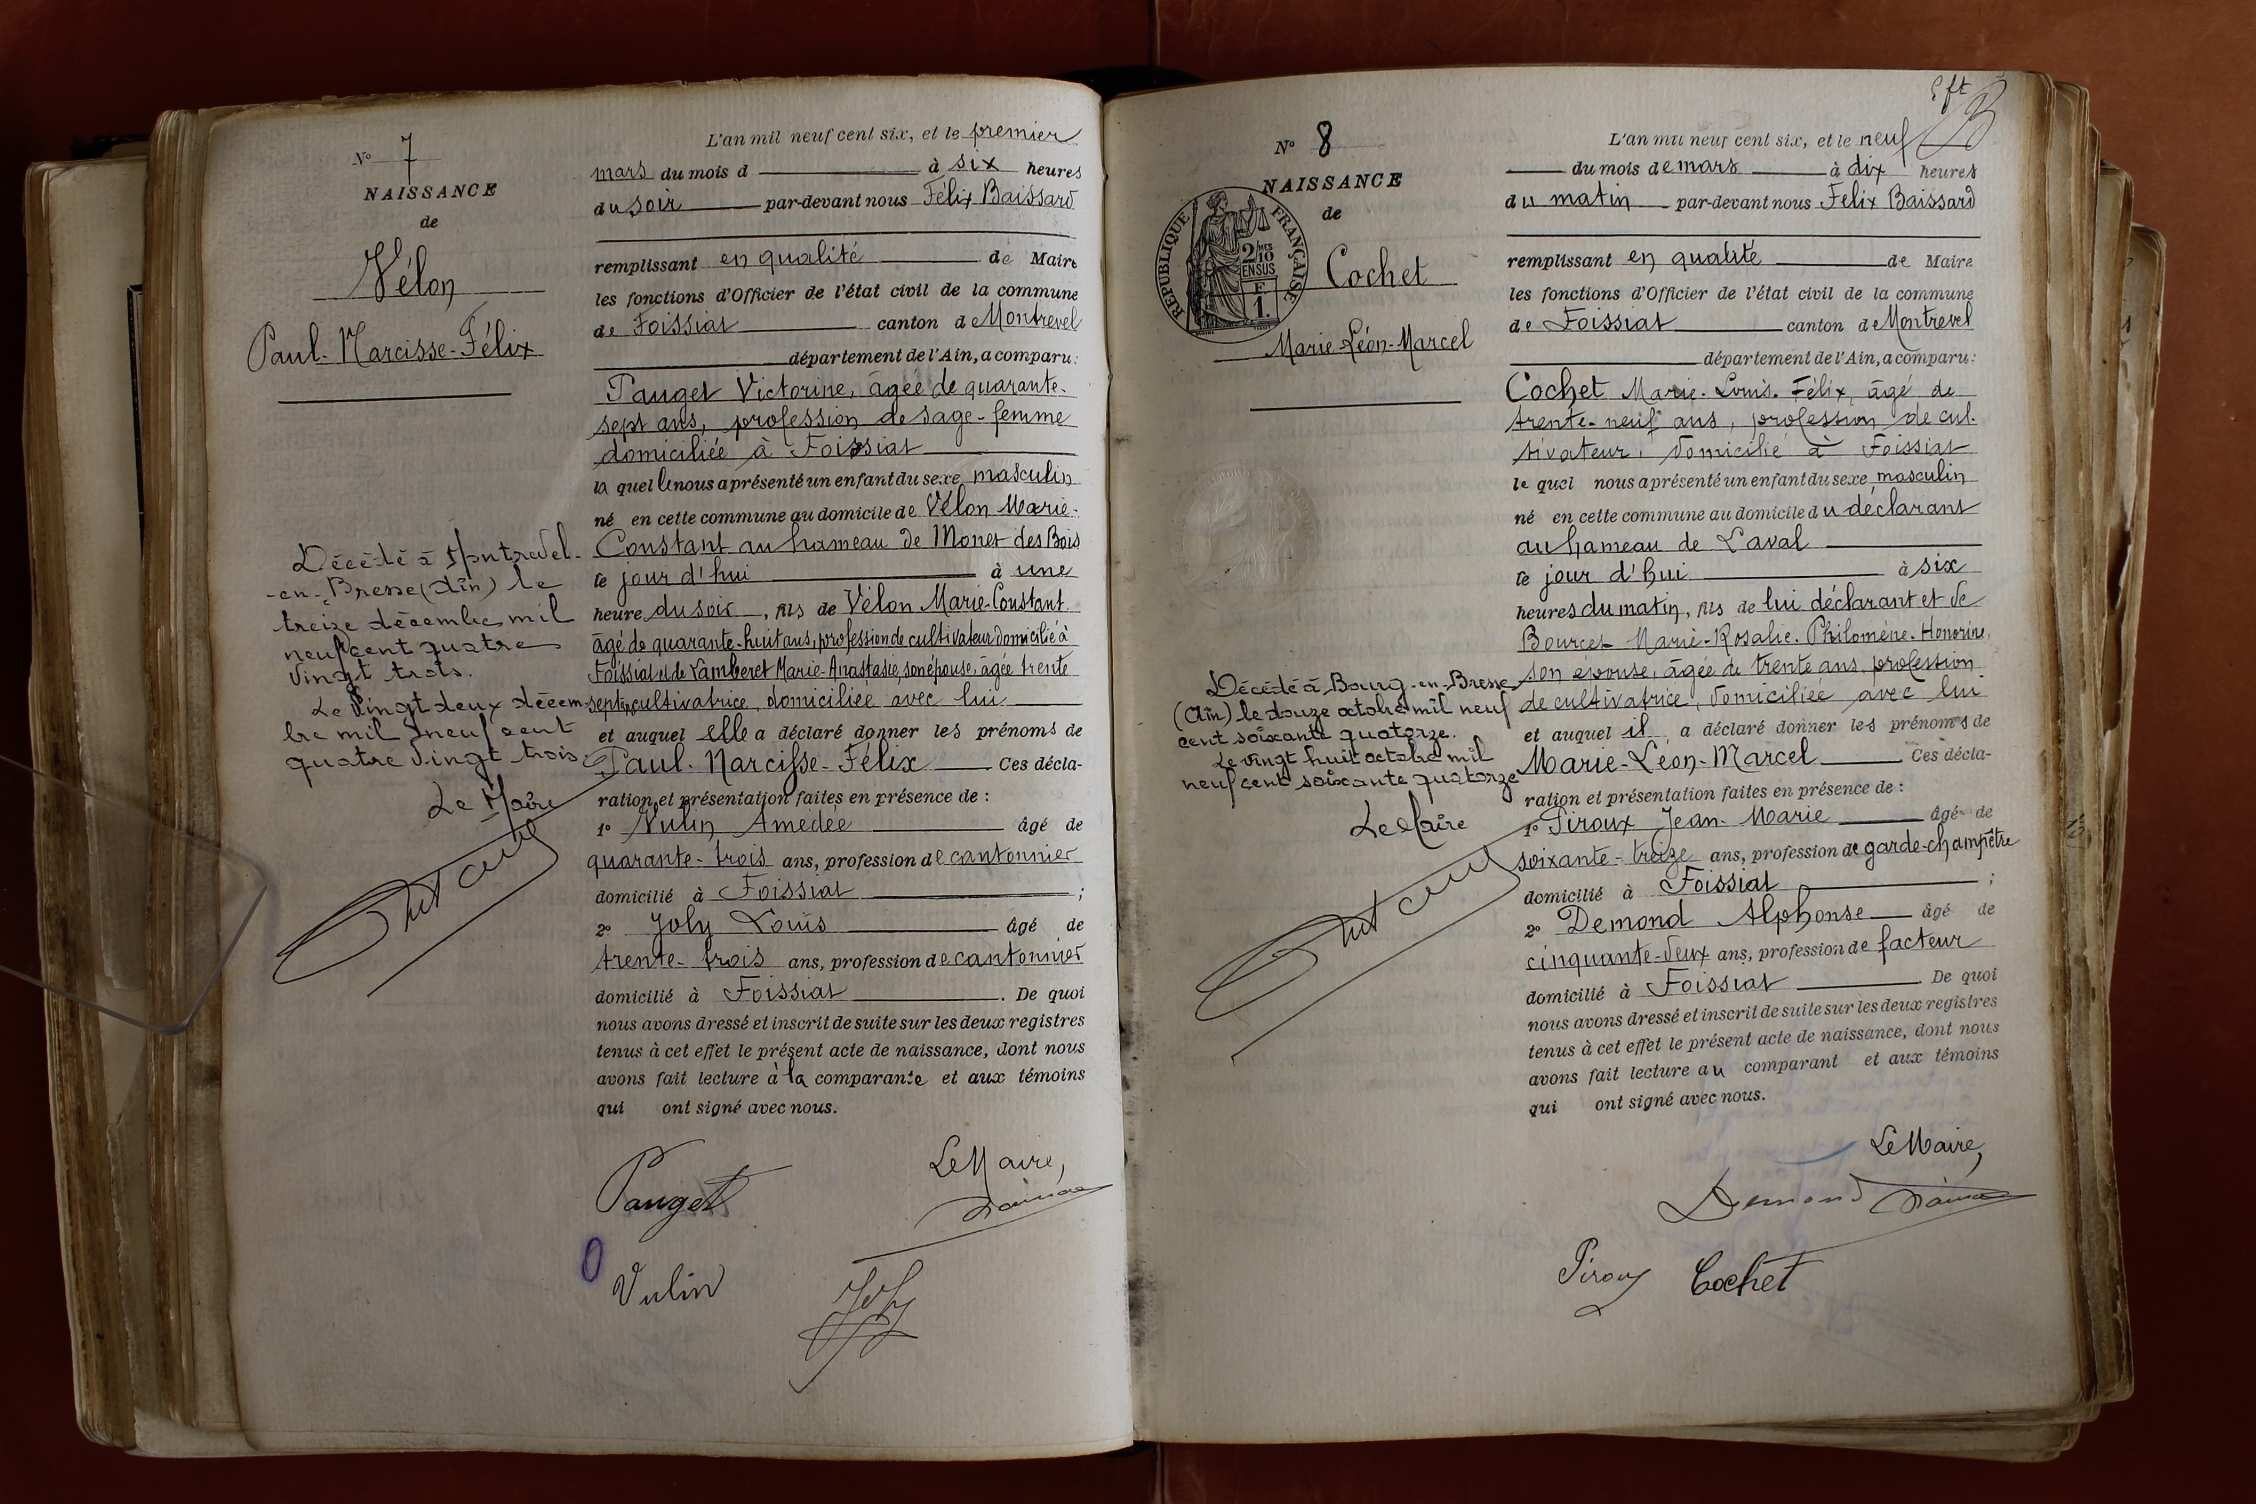 N° 7
NAISSANCE
de
Vélon
Paul-Narcisse-Félix
Décédé à Montrevel-
-en-Bresse (Ain) le
treize décembre mil
neuf cent quatre
vingt trois.
Le vingt deux décem-
bre mil neuf cent
quatre vingt trois
Le Maire
L'an mil neuf cent six, et le premier
mars du mois d à six heures
du soir par-devant nous Félix Baissard
remplissant en qualité de Maire
les fonctions d'Officier de l'état civil de la commune
de Foissiat canton de Montrevel
département de l'Ain, a comparu:
Pauget Victorine, âgée de quarante-
sept ans, profession de sage-femme
domiciliée à Foissiat
la quelle nous a présenté un enfant du sexe masculin
né en cette commune au domicile de Vélon Marie-
Constant au hameau de Monet des Bois
le jour d'hui à une
heure du soir, fils de Vélon Marie-Constant
âgé de quarante-huit ans, profession de cultivateur domicilié à
Foissiat et de Vamberet Marie-Anastasie, son épouse, âgée trente
sept, cultivatrice, domiciliée avec lui
et auquel elle a déclaré donner les prénoms de
Paul-Narcisse-Félix Ces décla-
ration et présentation faites en présence de :
1° Vulin Amédée âgé de
quarante-trois ans, profession de cantonnier
domicilié à Foissiat ;
2° Joly Louis âgé de
trente-trois ans, profession de cantonnier
domicilié à Foissiat. De quoi
nous avons dressé et inscrit de suite sur les deux registres
tenus à cet effet le présent acte de naissance, dont nous
avons fait lecture à la comparante et aux témoins
qui ont signé avec nous.
Le Maire,
Pauget
Vulin
Joly
N° 8
NAISSANCE
de
RÉPUBLIQUE FRANÇAISE
2/10
EN SUS
F
1.
Cochet
Marie-Léon-Marcel
Décédé à Bourg-en-Bresse
(Ain) le douze octobre mil neuf
cent soixante quatorze.
Le vingt huit octobre mil
neuf cent soixante quatorze
Le Maire
L'an mil neuf cent six, et le neuf
du mois de mars à dix heures
du matin par-devant nous Félix Baissard
remplissant en qualité de Maire
les fonctions d'Officier de l'état civil de la commune
de Foissiat canton de Montrevel
département de l'Ain, a comparu:
Cochet Marie-Louis-Félix, âgé de
trente-neuf ans, profession de cul-
tivateur, domicilié à Foissiat
le quel nous a présenté un enfant du sexe masculin
né en cette commune au domicile du déclarant
au hameau de Laval
le jour d'hui à six
heures du matin, fils de lui déclarant et de
Bourcet Marie-Rosalie-Philomène-Honorine,
son épouse, âgée de trente ans, profession
de cultivatrice, domiciliée avec lui
et auquel il a déclaré donner les prénoms de
Marie-Léon-Marcel Ces décla-
ration et présentation faites en présence de :
1° Piroux Jean-Marie âgé de
soixante-treize ans, profession de garde-champêtre
domicilié à Foissiat ;
2° Demond Alphonse âgé de
cinquante-deux ans, profession de facteur
domicilié à Foissiat De quoi
nous avons dressé et inscrit de suite sur les deux registres
tenus à cet effet le présent acte de naissance, dont nous
avons fait lecture au comparant et aux témoins
qui ont signé avec nous.
Le Maire,
Demond
Piroux Cochet